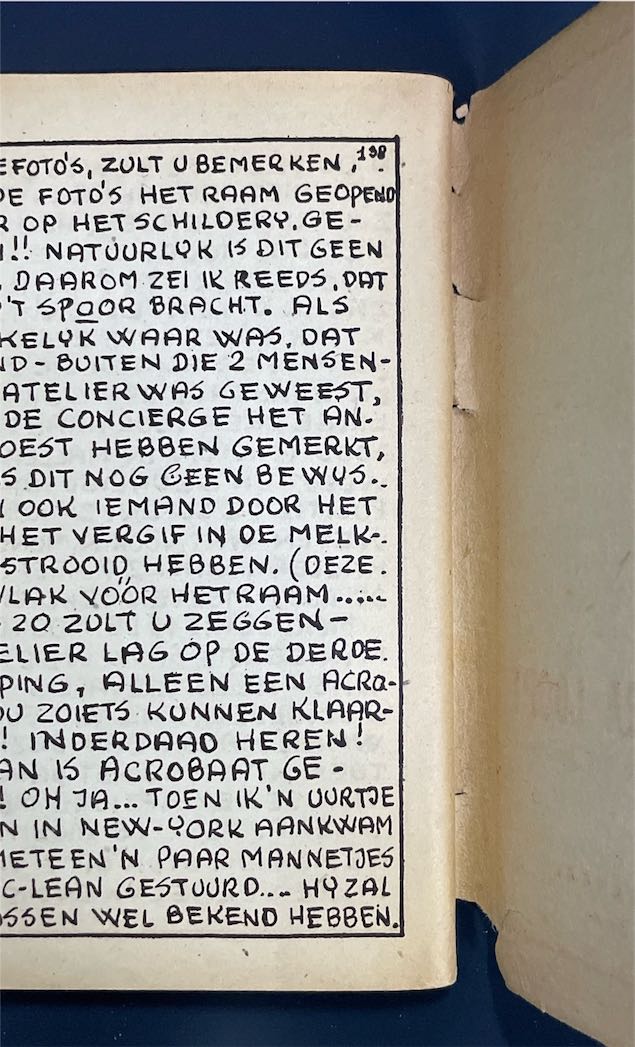 EFOTO'S, ZULT U BEMERKEN, 138.
DE FOTO'S HET RAAM GEOPEND
R OP HET SCHILDERY. GE-
!! NATUURLYK IS DIT GEEN
DAAROM ZEI IK REEDS, DAT
'T SPOOR BRACHT. ALS
KELYK WAAR WAS, DAT
ND-BUITEN DIE 2 MENSEN-
ATELIER WAS GEWEEST,
DE CONCIERGE HET AN-
OEST HEBBEN GEMERKT,
S DIT NOG GEEN BEWYS.
OOK IEMAND DOOR HET
HET VERGIF IN DE MELK-
STROOID HEBBEN. (DEZE
VLAK VÓÓR HET RAAM.....
ZO ZULT U ZEGGEN-
ELIER LAG OP DE DERDE
PING, ALLEEN EEN ACRO-
OU ZOIETS KUNNEN KLAAR-
! INDERDAAD HEREN!
AN IS ACROBAAT GE-
! OH JA... TOEN IK 'N UURTJE
N IN NEW-YORK AANKWAM
METEEN 'N PAAR MANNETJES
C-LEAN GESTUURD.... HY ZAL
OSSEN WEL BEKEND HEBBEN.